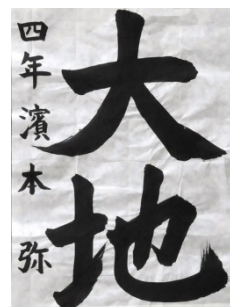 大地
四年濱本弥